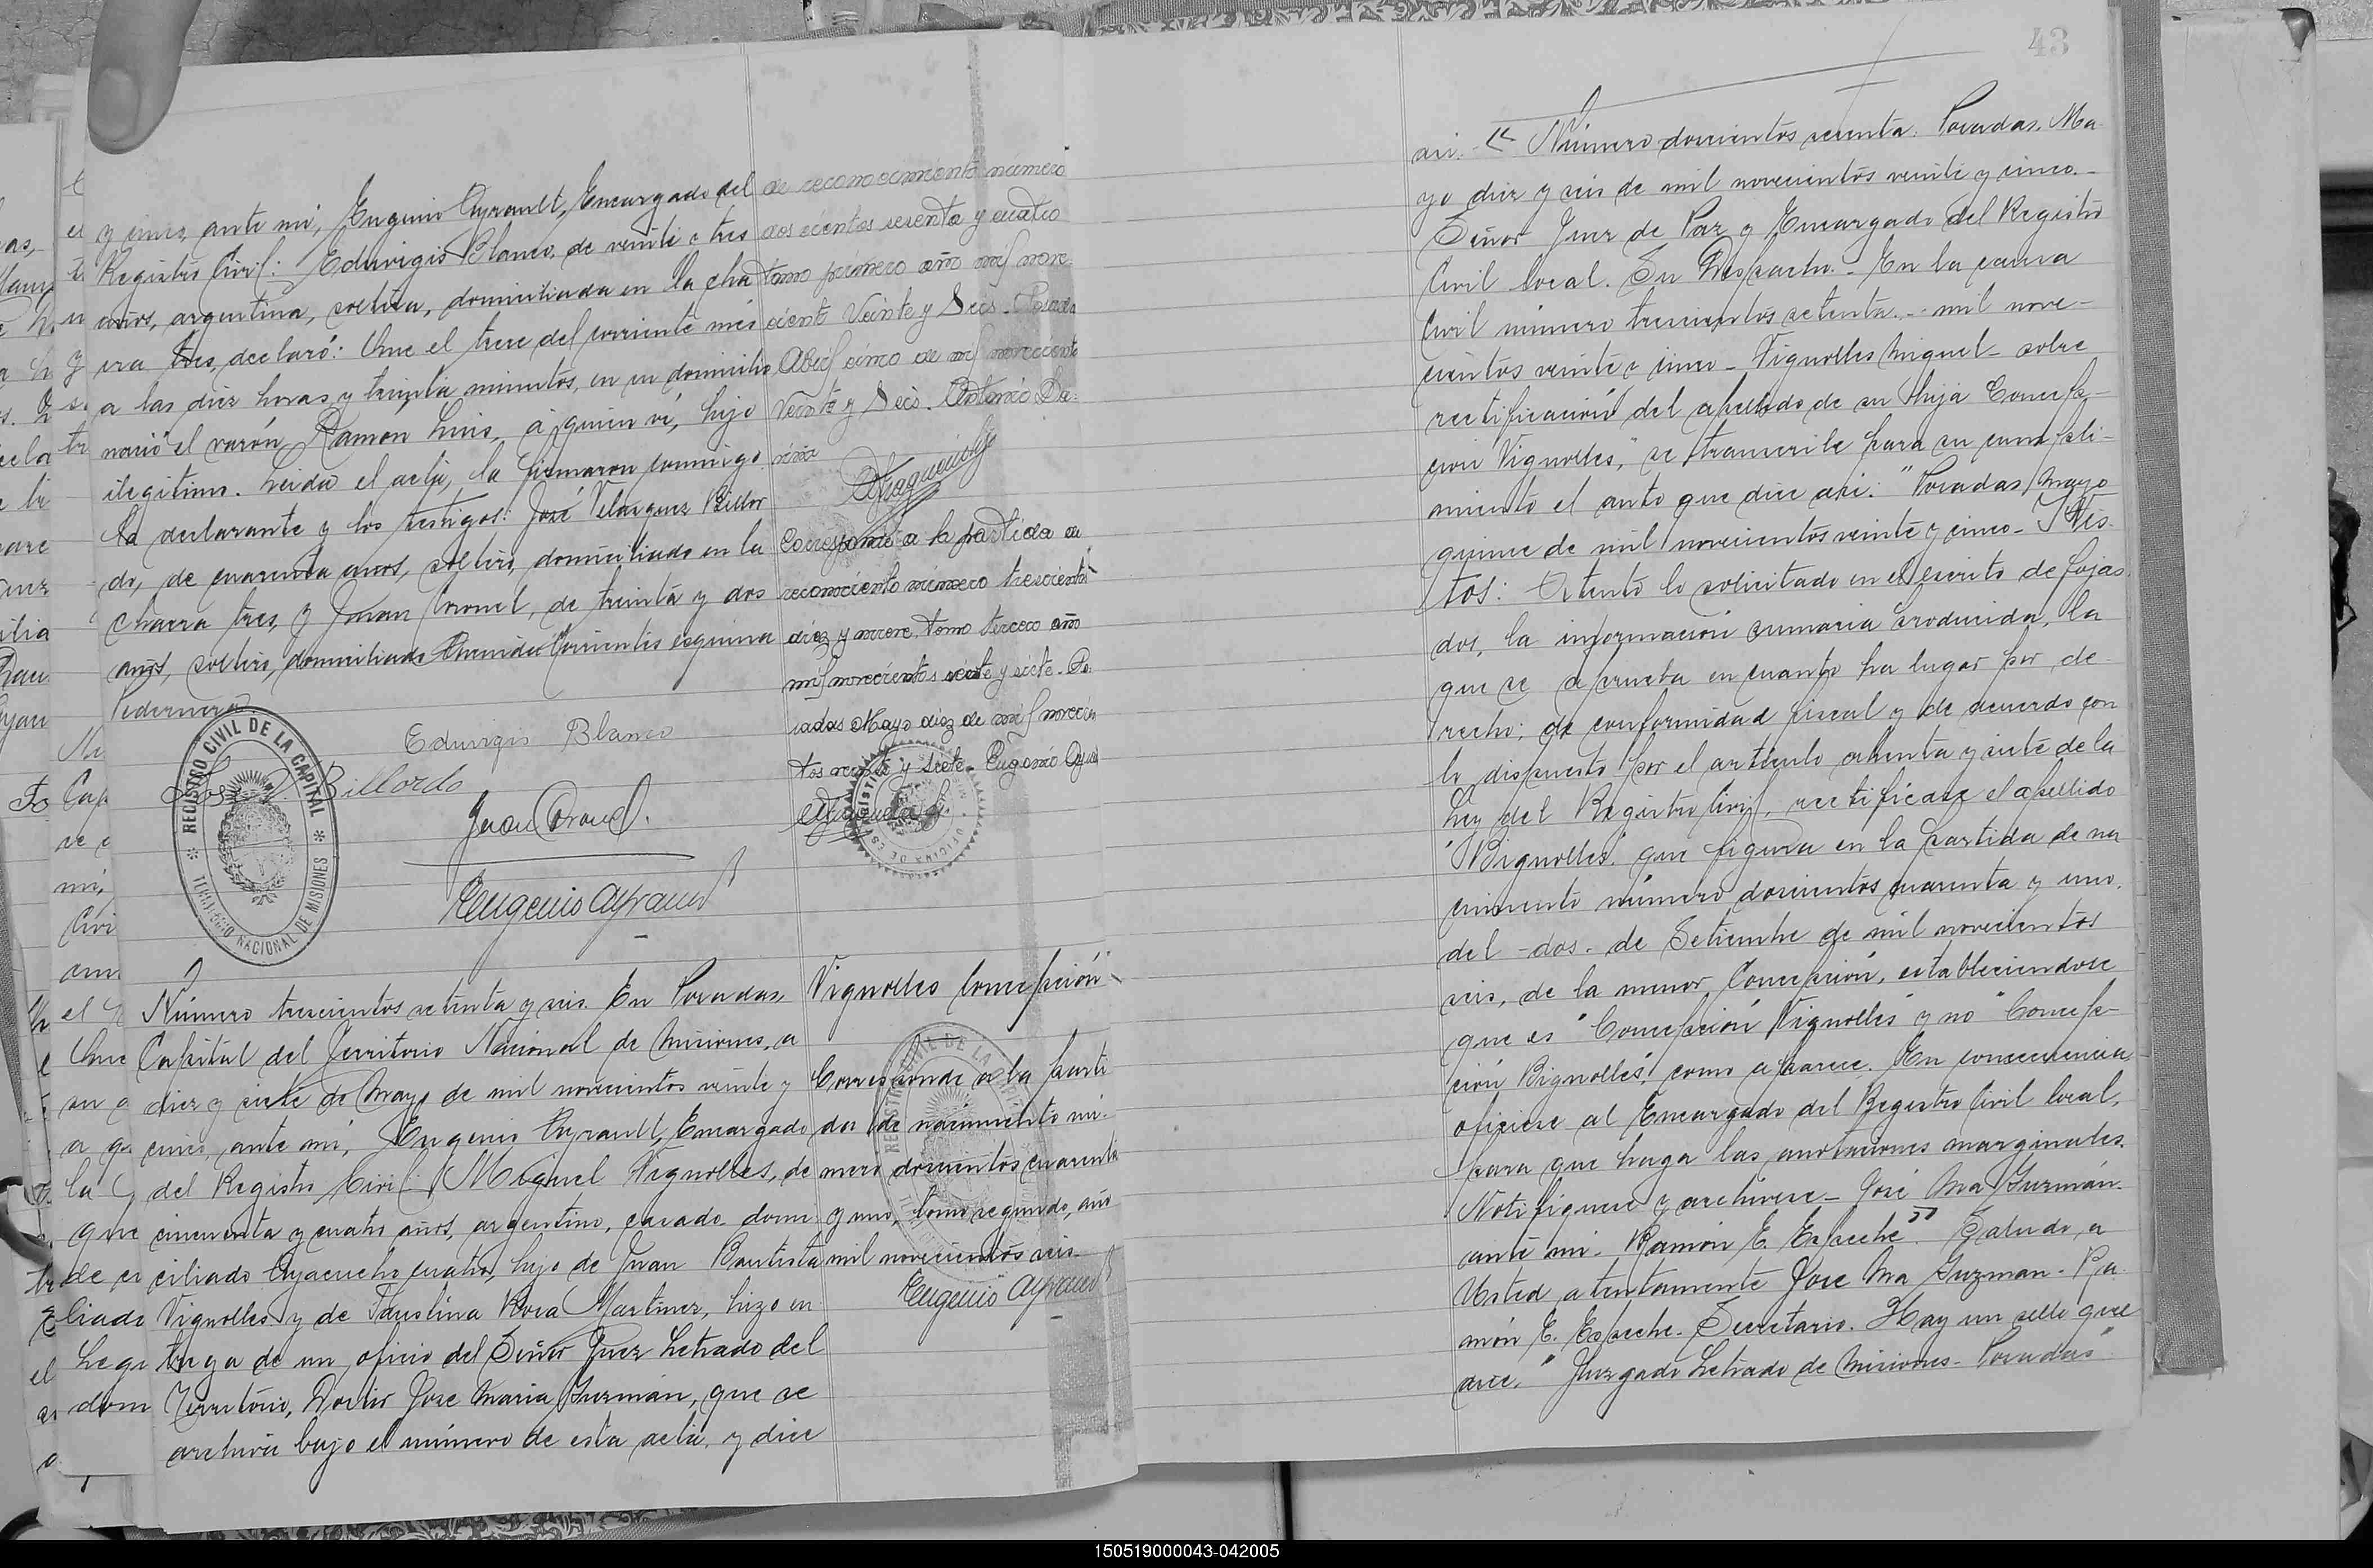 y cinco, ante mi, Eugenio Ayrault, Encargado del
Registro Civil: Eduvigis Blanco, de veinte o tres
años, argentina, soltera, domiciliada en la cha
cra tres, declaró: Que el trece del corriente mes
a las diez horas y treinta minutos, en su domicilio
nació el varón Ramon Luis, a quien vi, hijo
ilegítimo. Leida el acta, la firmaron conmigo
la declarante y los testigos: José Velazquez Billor
do, de cuarenta años, soltero, domiciliado en la
chacra tres, y Juan Coronel, de treinta y dos
años, soltero, domiciliado Avenida Corrientes esquina
Pedernera
Eduvigis Blanco
José V. Billordo
Juan Coronel.
Eugenio Ayrault
REGISTRO CIVIL DE LA CAPITAL
TERRITORIO NACIONAL DE MISIONES
de reconocimiento número
dos cientos sesenta y cuatro
tomo primero año mil nove
ciento Veinte y Seis. Posada
Abril cinco de mil novecientos
Veinte y Seis. Antonio
Corresponde a la partida de
reconociento número trescientos
diez y nueve, tomo tercero año
mil novecientos veinte y siete. Po
sadas Mayo diez de mil novecien
tos veinte y siete. Eugenio
Número trescientos setenta y seis. En Posadas,
Capital del Territorio Nacional de Misiones, a
diez y siete de Mayo de mil novecientos veinte y
cinco, ante mi, Eugenio Ayrault, Encargado
del Registro Civil: Miguel Vignolles, de
cincuenta y cuatro años, argentino, casado, domi
ciliado Ayacucho cuatro, hijo de Juan Bautista
Vignolles y de Faustina Rosa Martinez, hizo en
trega de un oficio del Señor Juez Letrado del
Territorio, Doctor Jose Maria Guzmán, que se
archiva bajo el número de esta acta, y dice
Vignolles Concepción
Corresponde a la parti
da de nacimiento nú
mero doscientos cuarenta
y uno, tomo segundo, año
mil novecientos seis.
Eugenio Ayrault
43
asi: "Número doscientos sesenta. Posadas, Ma
yo diez y seis de mil novecientos veinte y cinco.-
Señor Juez de Paz y Encargado del Registro
Civil local. Su Despacho.- En la causa
Civil número trescientos setenta.- mil nove-
cientos veinte o cinco - Vignolles Miguel - sobre
rectificación del apellido de su hija Concep-
cion Vignolles," se transcribe para su cumpli-
miento el auto que dice asi: "Posadas, Mayo
quince de mil novecientos veinte y cinco - Y Vis-
tos: Atento lo solicitado en el escrito de fojas
dos, la información sumaria producida, la
que se aprueba en cuanto ha lugar por de-
recho; de conformidad fiscal y de acuerdo con
lo dispuesto por el artículo ochenta y siete de la
Ley del Registro Civil, rectifícase el apellido
"Bignolles" que figura en la partida de na
cimiento número doscientos cuarenta y uno,
del - dos - de Setiembre de mil novecientos
seis, de la menor Concepción, estableciendose
que es "Concepción Vignolles" y no "Concep-
ción Bignolles", como aparece. En consecuencia
oficiese al Encargado del Registro Civil local,
para que haga las anotaciones marginales.
Notifiquese y archivese - José Ma Guzmán.
ante mi - Ramón E. Espeche". Saludo a
Usted atentamente Jose Ma Guzman - Ra
món E. Espeche - Secretario. Hay un sello que
dice, "Juzgado Letrado de Misiones - Posadas"
150519000043-042005